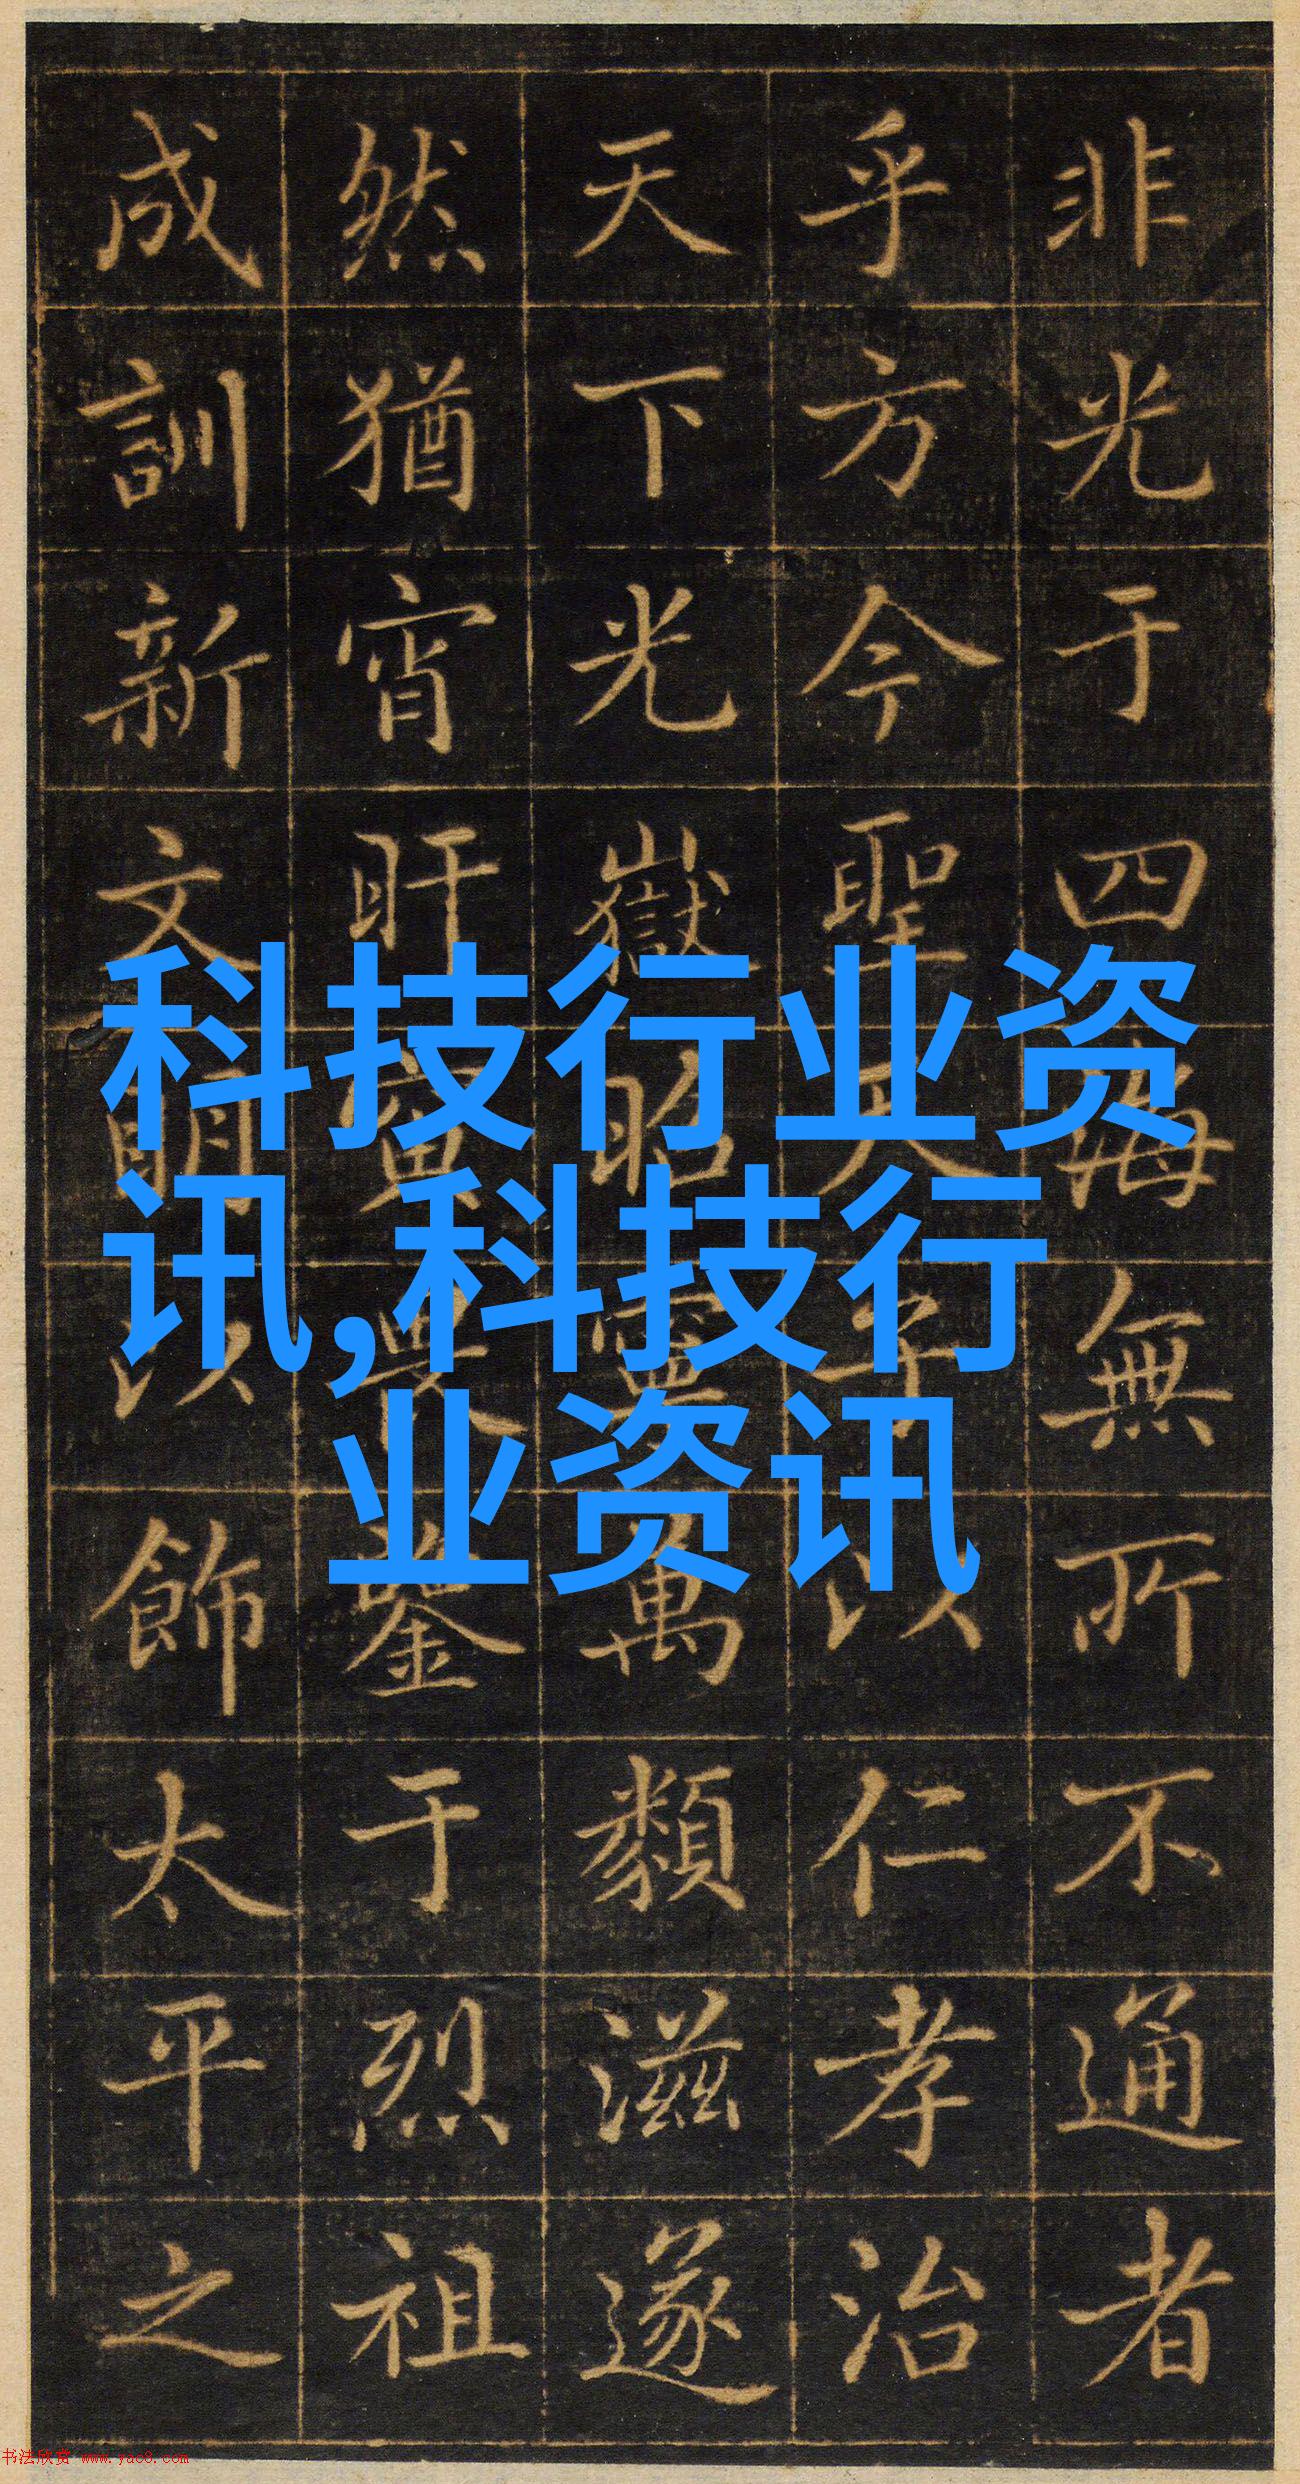 非光于四海無所不通者
乎方今聖天子以仁孝治
天下光嶽昭靈萬類滋遂
然猶宵旰寅畏鑒于烈祖
成訓新文明以飾太平之
科技行业资
讯,科技行
业资讯
书法欣赏 www.yac8.com